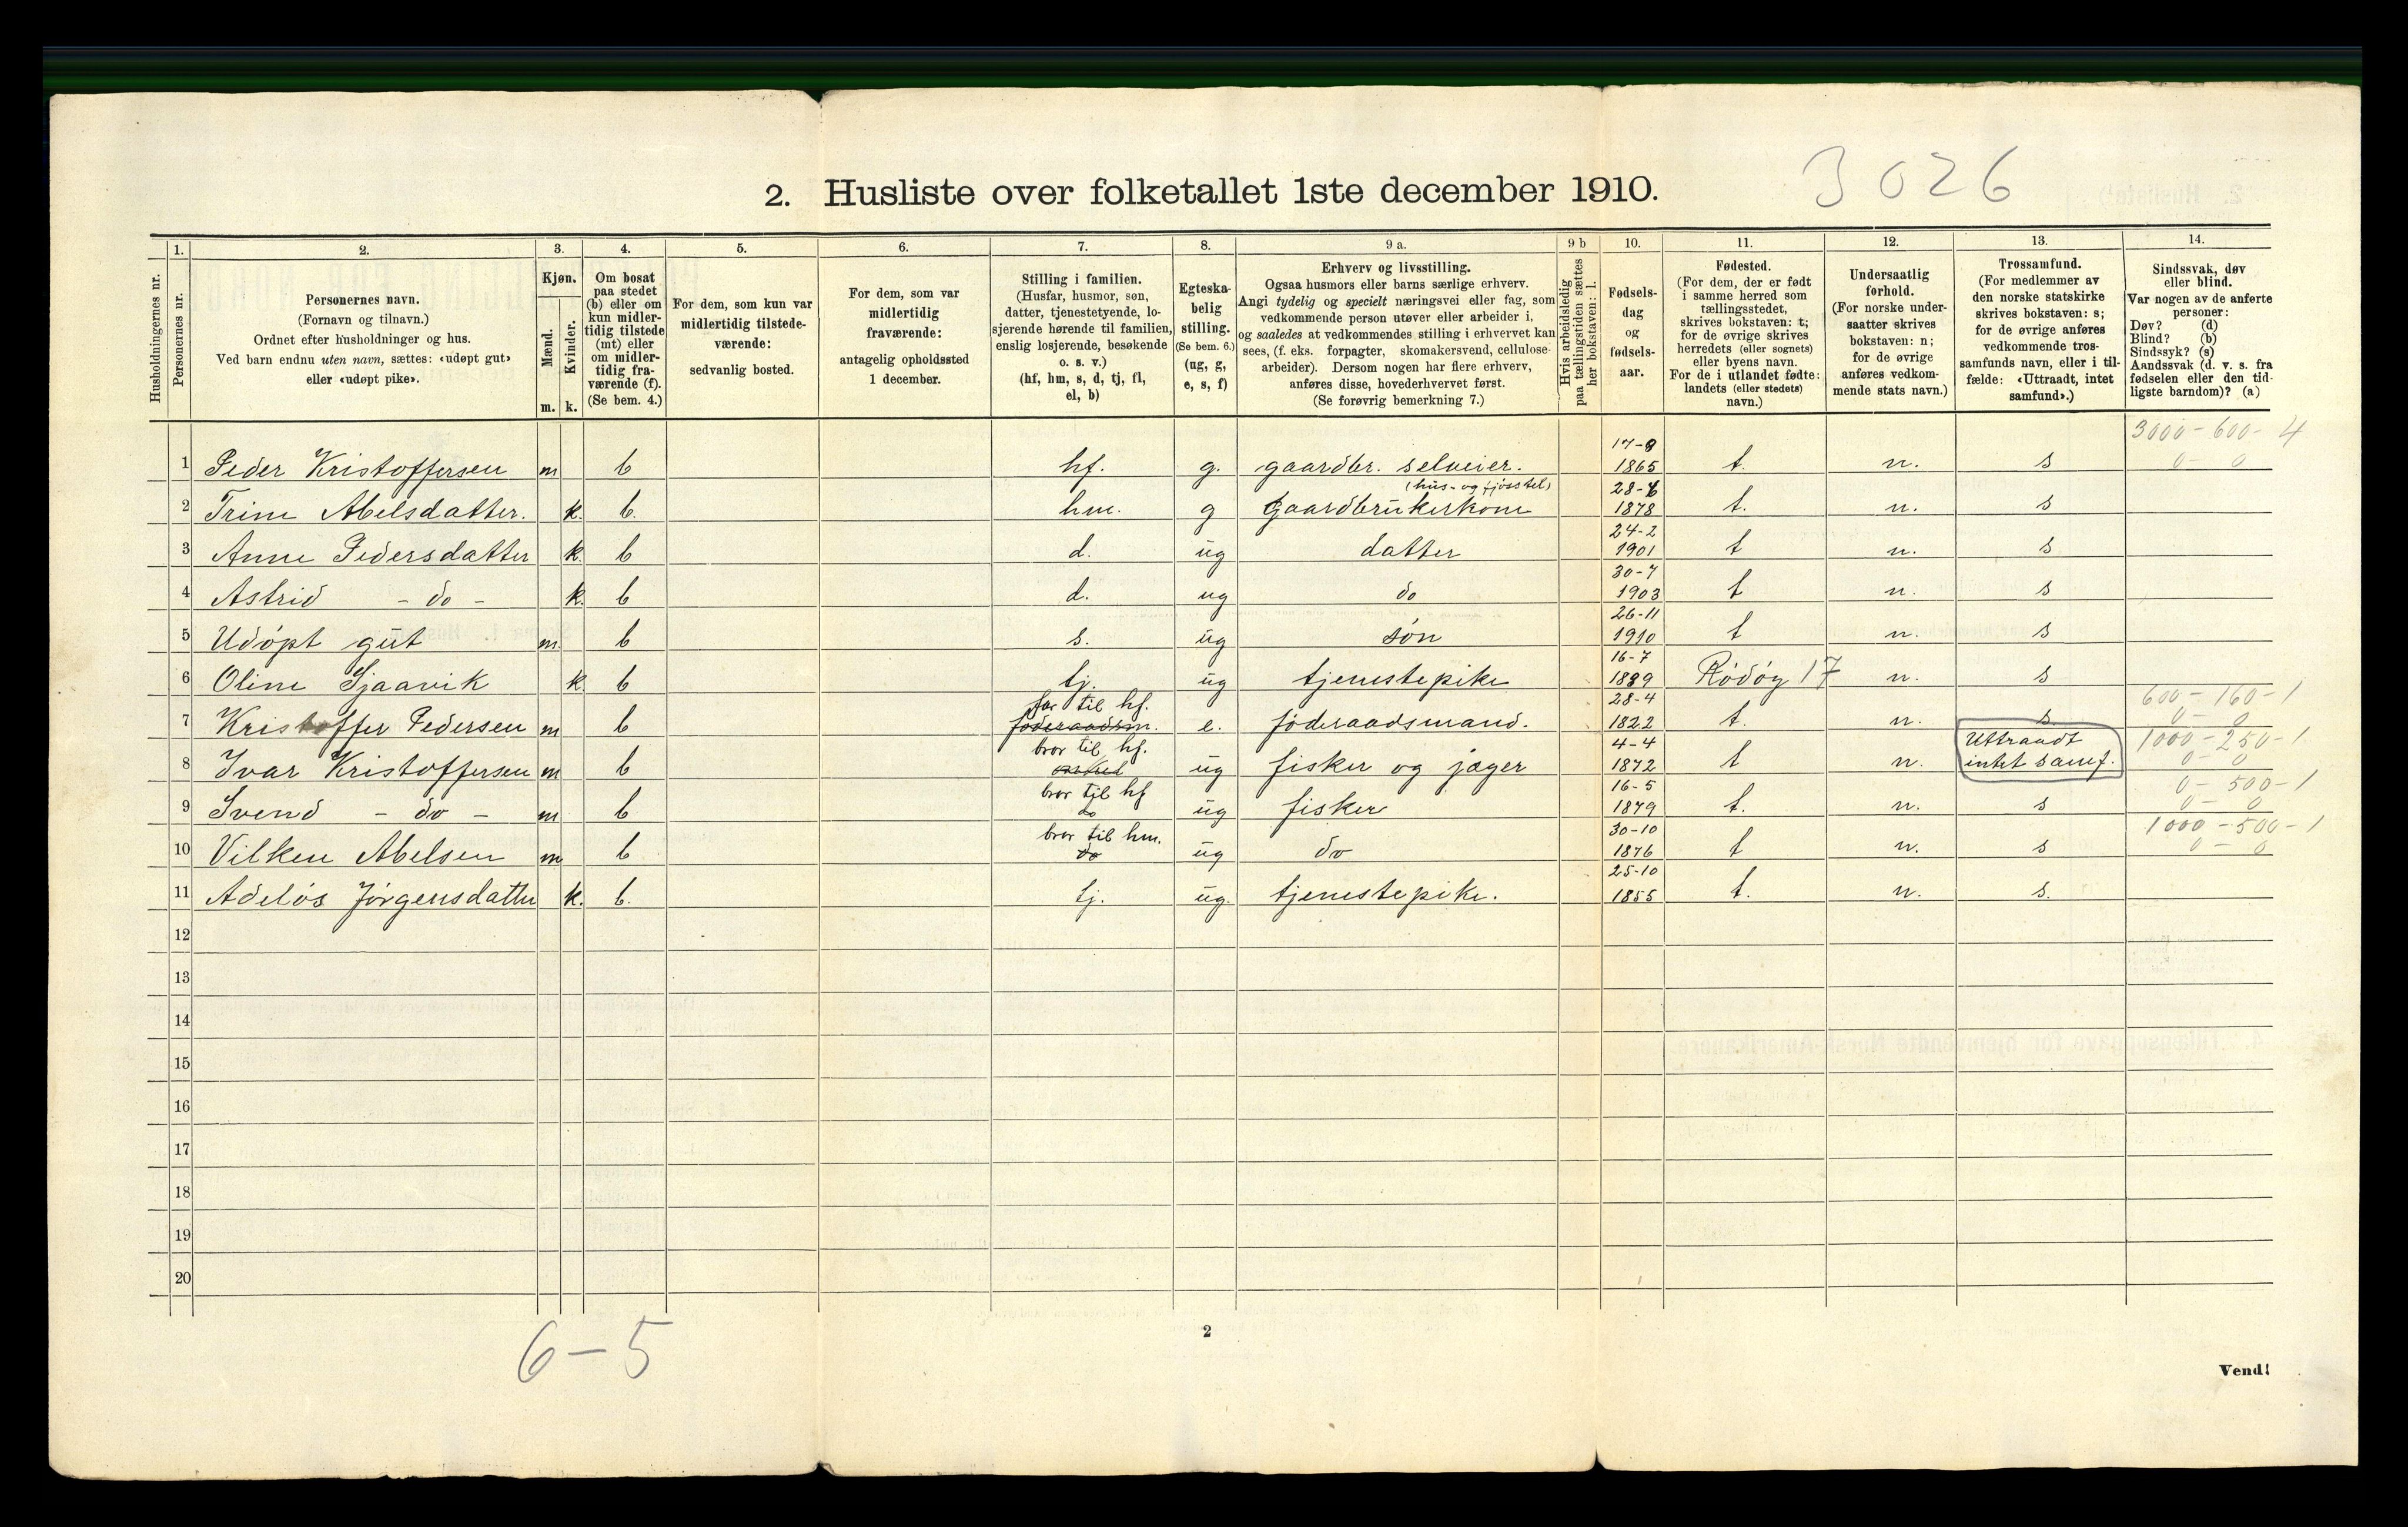 2. Husliste over folketallet 1ste december 1910.
3026
Husholdningernes nr.
1.
Personernes nr.
2.
Personernes navn.
(Fornavn og tilnavn.)
Ordnet efter husholdninger og hus.
Ved barn endnu uten navn, sættes: «udøpt gut»
eller «udøpt pike».
3.
Kjøn.
Mænd.
Kvinder.
m. k.
4.
Om bosat
paa stedet
(b) eller om
kun midler-
tidig tilstede
(mt) eller
om midler-
tidig fra-
værende (f).
(Se bem. 4.)
5.
For dem, som kun var
midlertidig tilstede-
værende:
sedvanlig bosted.
6.
For dem, som var
midlertidig
fraværende:
antagelig opholdssted
1 december.
7.
Stilling i familien.
(Husfar, husmor, søn,
datter, tjenestetyende, lo-
sjerende hørende til familien,
enslig losjerende, besøkende
o. s. v.)
(hf, hm, s, d, tj, fl,
el, b)
8.
Egteska-
belig
stilling.
(Se bem. 6.)
(ug, g,
e, s, f)
9 a.
Erhverv og livsstilling.
Ogsaa husmors eller barns særlige erhverv.
Angi tydelig og specielt næringsvei eller fag, som
vedkommende person utøver eller arbeider i,
og saaledes at vedkommendes stilling i erhvervet kan
sees, (f. eks. forpagter, skomakersvend, cellulose-
arbeider). Dersom nogen har flere erhverv,
anføres disse, hovederhvervet først.
(Se forøvrig bemerkning 7.)
9 b
Hvis arbeidsledig
paa tællingstiden sættes
her bokstaven: l.
10.
Fødsels-
dag
og
fødsels-
aar.
11.
Fødested.
(For dem, der er født
i samme herred som
tællingsstedet,
skrives bokstaven: t;
for de øvrige skrives
herredets (eller sognets)
eller byens navn.
For de i utlandet fødte:
landets (eller stedets)
navn.)
12.
Undersaatlig
forhold.
(For norske under-
saatter skrives
bokstaven: n;
for de øvrige
anføres vedkom-
mende stats navn.)
13.
Trossamfund.
(For medlemmer av
den norske statskirke
skrives bokstaven: s;
for de øvrige anføres
vedkommende tros-
samfunds navn, eller i til-
fælde: «Uttraadt, intet
samfund».)
14.
Sindssvak, døv
eller blind.
Var nogen av de anførte
personer:
Døv? (d)
Blind? (b)
Sindssyk? (s)
Aandssvak (d. v. s. fra
fødselen eller den tid-
ligste barndom)? (a)
17-9 3000-600-4
1 Peder Kristoffersen m b hf. g. gaardbr. selveier. 1865 t. n. s 0-0
(hus- og fjøsstel) 28-
2 Trine Abelsdatter. k. b. hm. g gaardbrukerkone 1878 t. n. s
24-2
3 Anne Pedersdatter k. b d. ug datter 1901 t n. s
30-7
4 Astrid - do - k. b d. ug do 1903 t n. s
26-11
5 Udøpt gut m. b s. ug søn 1910 t n. s
16-7
6 Oline Sjaavik k. b tj. ug tjenestepike 1889 Rødøy 17 n. s
far til hf. 28-4 600-160-1
7 Kristoffer Pedersen m b føderaadsm. e. føderaadsmand. 1822 t. n. s 0-0
bror til hf. 4-4 Uttraadt 1000-250-1
8 Ivar Kristoffersen m b ug fisker og jæger 1872 t n. intet samf. 0-0
bror til hf 16-5 0-500-1
9 Svend - do - m b do ug fisker 1879 t. n. s 0-0
bror til hm. 30-10 1000-500-1
10 Vilken Abelsen m b do ug do 1876 t n. s 0-0
25-10
11 Adeløs Jørgensdatter k. b. tj. ug. tjenestepike. 1855 t. n. s.
12
13
14
15
16
17
18
19
20
6-5
2
Vend!